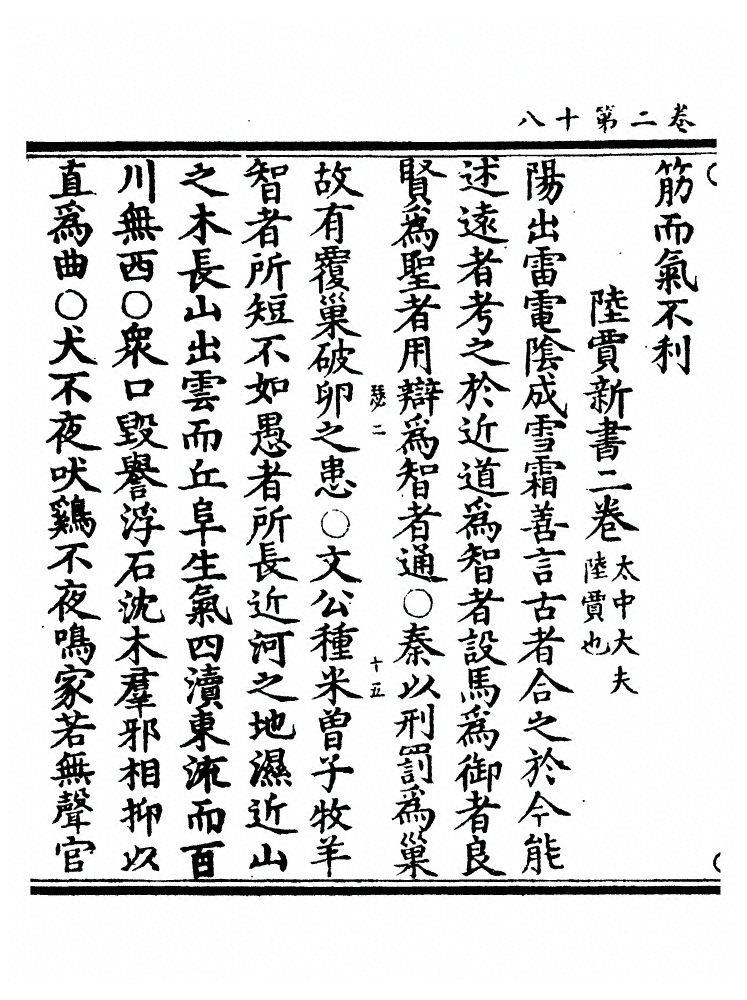 卷二第十八
筋而氣不利
陸賈新書二卷 太中大夫陸賈也
陽出雷電陰成雪霜善言古者合之於今能
述遠者考之於近道爲智者設馬爲御者良
賢爲聖者用辯爲智者通○秦以刑罰爲巢
瑟二
十五
故有覆巢破卵之患○文公種米曾子牧羊
智者所短不如愚者所長近河之地濕近山
之木長山出雲而丘阜生氣四瀆東流而百
川無西○衆口毀譽浮石沈木羣邪相抑以
直爲曲○犬不夜吠鷄不夜鳴家若無聲官